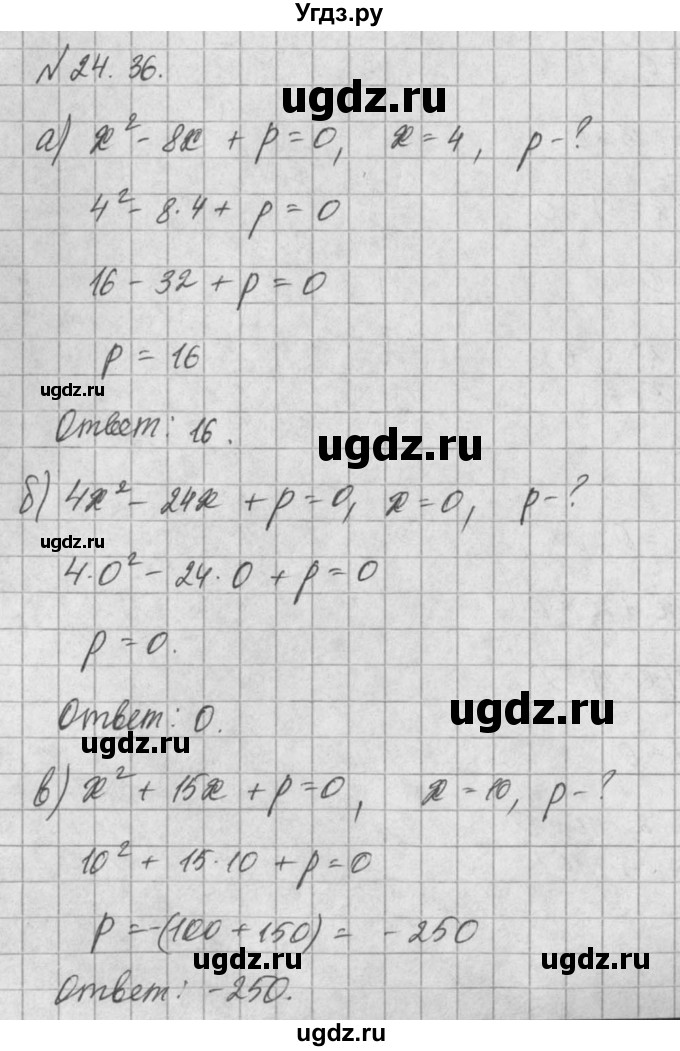 Угдз.ру
№ 24. 36.
ugdz.ru
а) x² - 8x + p = 0, x = 4, p - ?
4² - 8·4 + p = 0
16 - 32 + p = 0
p = 16
ugdz.ru
Ответ: 16.
ugdz.ru
б) 4x² - 24x + p = 0, x = 0, p - ?
ugdz.ru
4·0² - 24·0 + p = 0
p = 0.
Ответ: 0.
ugdz.ru
ugdz.ru
в) x² + 15x + p = 0, x = 10, p - ?
10² + 15·10 + p = 0
p = -(100 + 150) = - 250
ugdz.ru
ugdz.ru
Ответ: -250.
ugdz.ru